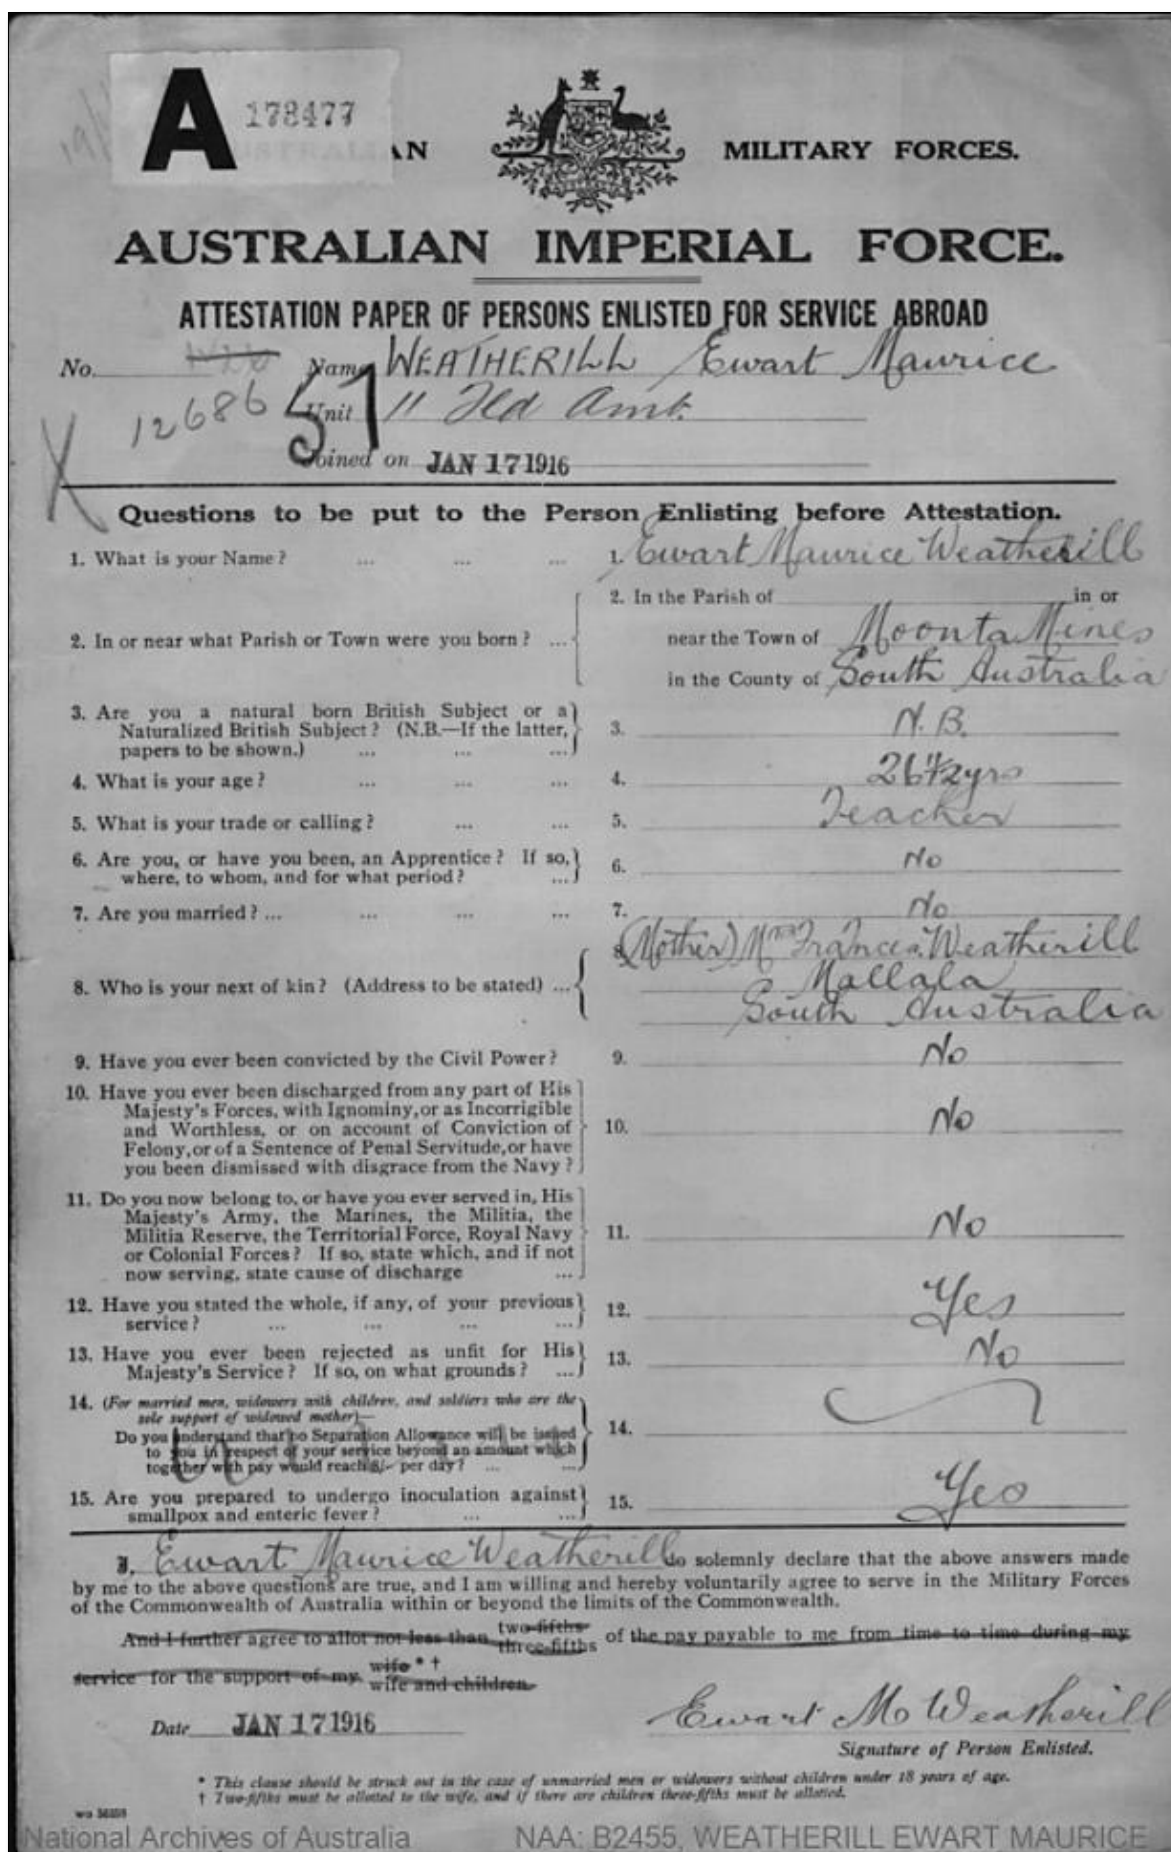 A 178477
AN MILITARY FORCES.
AUSTRALIAN IMPERIAL FORCE.
ATTESTATION PAPER OF PERSONS ENLISTED FOR SERVICE ABROAD
No. Name WEATHERILL Ewart Maurice
12686 Unit 11 Fld Amb.
57
X Joined on JAN 17 1916
Questions to be put to the Person Enlisting before Attestation.
1. What is your Name? ... ... ... 1. Ewart Maurice Weatherill
2. In or near what Parish or Town were you born? ... 2. In the Parish of in or
near the Town of Moonta Mines
in the County of South Australia
3. Are you a natural born British Subject or a
Naturalized British Subject? (N.B.—If the latter, 3. N.B.
papers to be shown.) ... ... ...
4. What is your age? ... ... ... 4. 26 1/2 yrs
5. What is your trade or calling? ... ... 5. Teacher
6. Are you, or have you been, an Apprentice? If so, 6. No
where, to whom, and for what period? ...
7. Are you married? ... ... ... ... 7. No
8. Who is your next of kin? (Address to be stated) ... 8. (Mother) Mrs Frances Weatherill
Mallala
South Australia
9. Have you ever been convicted by the Civil Power? 9. No
10. Have you ever been discharged from any part of His
Majesty's Forces, with Ignominy, or as Incorrigible
and Worthless, or on account of Conviction of 10. No
Felony, or of a Sentence of Penal Servitude, or have
you been dismissed with disgrace from the Navy?
11. Do you now belong to, or have you ever served in, His
Majesty's Army, the Marines, the Militia, the
Militia Reserve, the Territorial Force, Royal Navy 11. No
or Colonial Forces? If so, state which, and if not
now serving, state cause of discharge ...
12. Have you stated the whole, if any, of your previous 12. Yes
service? ... ... ... ...
13. Have you ever been rejected as unfit for His 13. No
Majesty's Service? If so, on what grounds? ...
14. (For married men, widowers with children, and soldiers who are the
sole support of widowed mother)—
Do you understand that no Separation Allowance will be issued 14.
to you in respect of your service beyond an amount which
together with pay would reach 8/- per day? ... ...
15. Are you prepared to undergo inoculation against 15. Yes
smallpox and enteric fever? ... ...
I, Ewart Maurice Weatherill do solemnly declare that the above answers made
by me to the above questions are true, and I am willing and hereby voluntarily agree to serve in the Military Forces
of the Commonwealth of Australia within or beyond the limits of the Commonwealth.
And I further agree to allot not less than two-fifths three-fifths of the pay payable to me from time to time during my
service for the support of my wife * † wife and children.
Date JAN 17 1916 Ewart M Weatherill
Signature of Person Enlisted.
* This clause should be struck out in the case of unmarried men or widowers without children under 18 years of age.
† Two-fifths must be allotted to the wife, and if there are children three-fifths must be allotted.
National Archives of Australia NAA: B2455, WEATHERILL EWART MAURICE